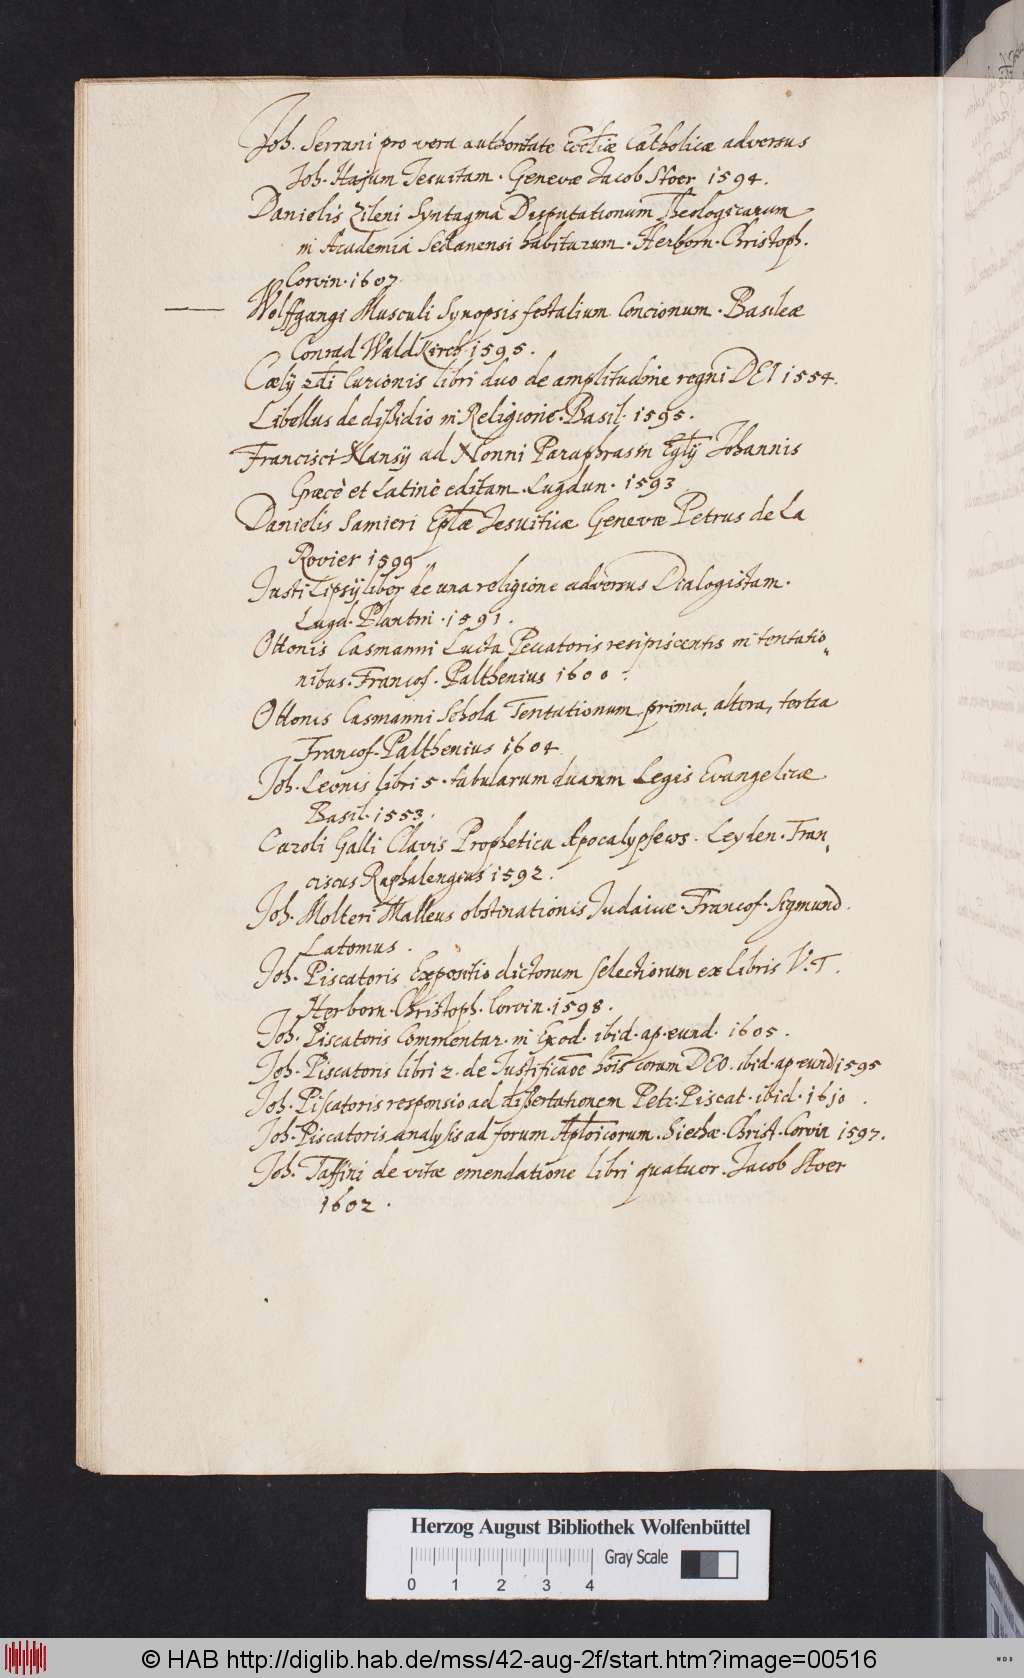 Joh. Serrani pro vera authoritate Eccliæ Catholicæ adversus
Joh. Hajum Jesuitam. Genevæ Jacob Stoer 1594.
Danielis Zileni Syntagma Disputationum Theologicarum
in Academia Sedanensi habitarum. Herborn. Christoph.
Corvin. 1607
Wolffgangi Musculi Synopsis festalium Concionum. Basileæ
Conrad Waldkirch 1595.
Cælÿ 2di Curionis libri duo de amplitudine regni DEI 1554.
Libellus de dißidio in Religione. Basil. 1595.
Francisci Nansÿ ad Nonni Paraphrasin Eglÿ Johannis
Græcè et Latinè editam. Lugdun. 1593
Danielis Samieri Eplæ Jesuiticæ Genevæ Petrus de La
Rovier 1599
Justi Lipsÿ liber de una religione adversus Dialogistam.
Lugd. Plantin. 1591.
Ottonis Casmanni Lucta Peccatoris resipiscentis in tentatio„
nibus. Francof. Palthenius 1600.
Ottonis Casmanni Schola Tentationum prima, altera, tertia
Francof. Palthenius 1604
Joh. Leonis libri 5. tabularum duarum Legis Evangelicæ
Basil. 1553.
Caroli Galli Clavis Prophetica Apocalypsews. Leyden. Fran„
ciscus Raphalengius 1592.
Joh. Molteri Malleus obstinationis Judaicæ. Francof. Sigmund.
Latomus.
Joh. Piscatoris Expositio dictorum selectiorum ex libris V. T.
Herborn. Christoph. Corvin. 1598.
Joh. Piscatoris Commentar. in Exod. ibid. ap. eund. 1605.
Joh. Piscatoris libri 2. de Justificaõe hoĩs coram DEO. ibid. ap. eund 1595
Joh. Piscatoris responsio ad dißertationem Petr. Piscat. ibid. 1610.
Joh. Piscatoris analysis ad forum Aploicorum. Sichæ. Christ. Corvin 1597.
Joh. Taffini de vitæ emendatione libri quatuor. Jacob Stoer
1602.
Herzog August Bibliothek Wolfenbüttel
Gray Scale
0 1 2 3 4
© HAB http://diglib.hab.de/mss/42-aug-2f/start.htm?image=00516